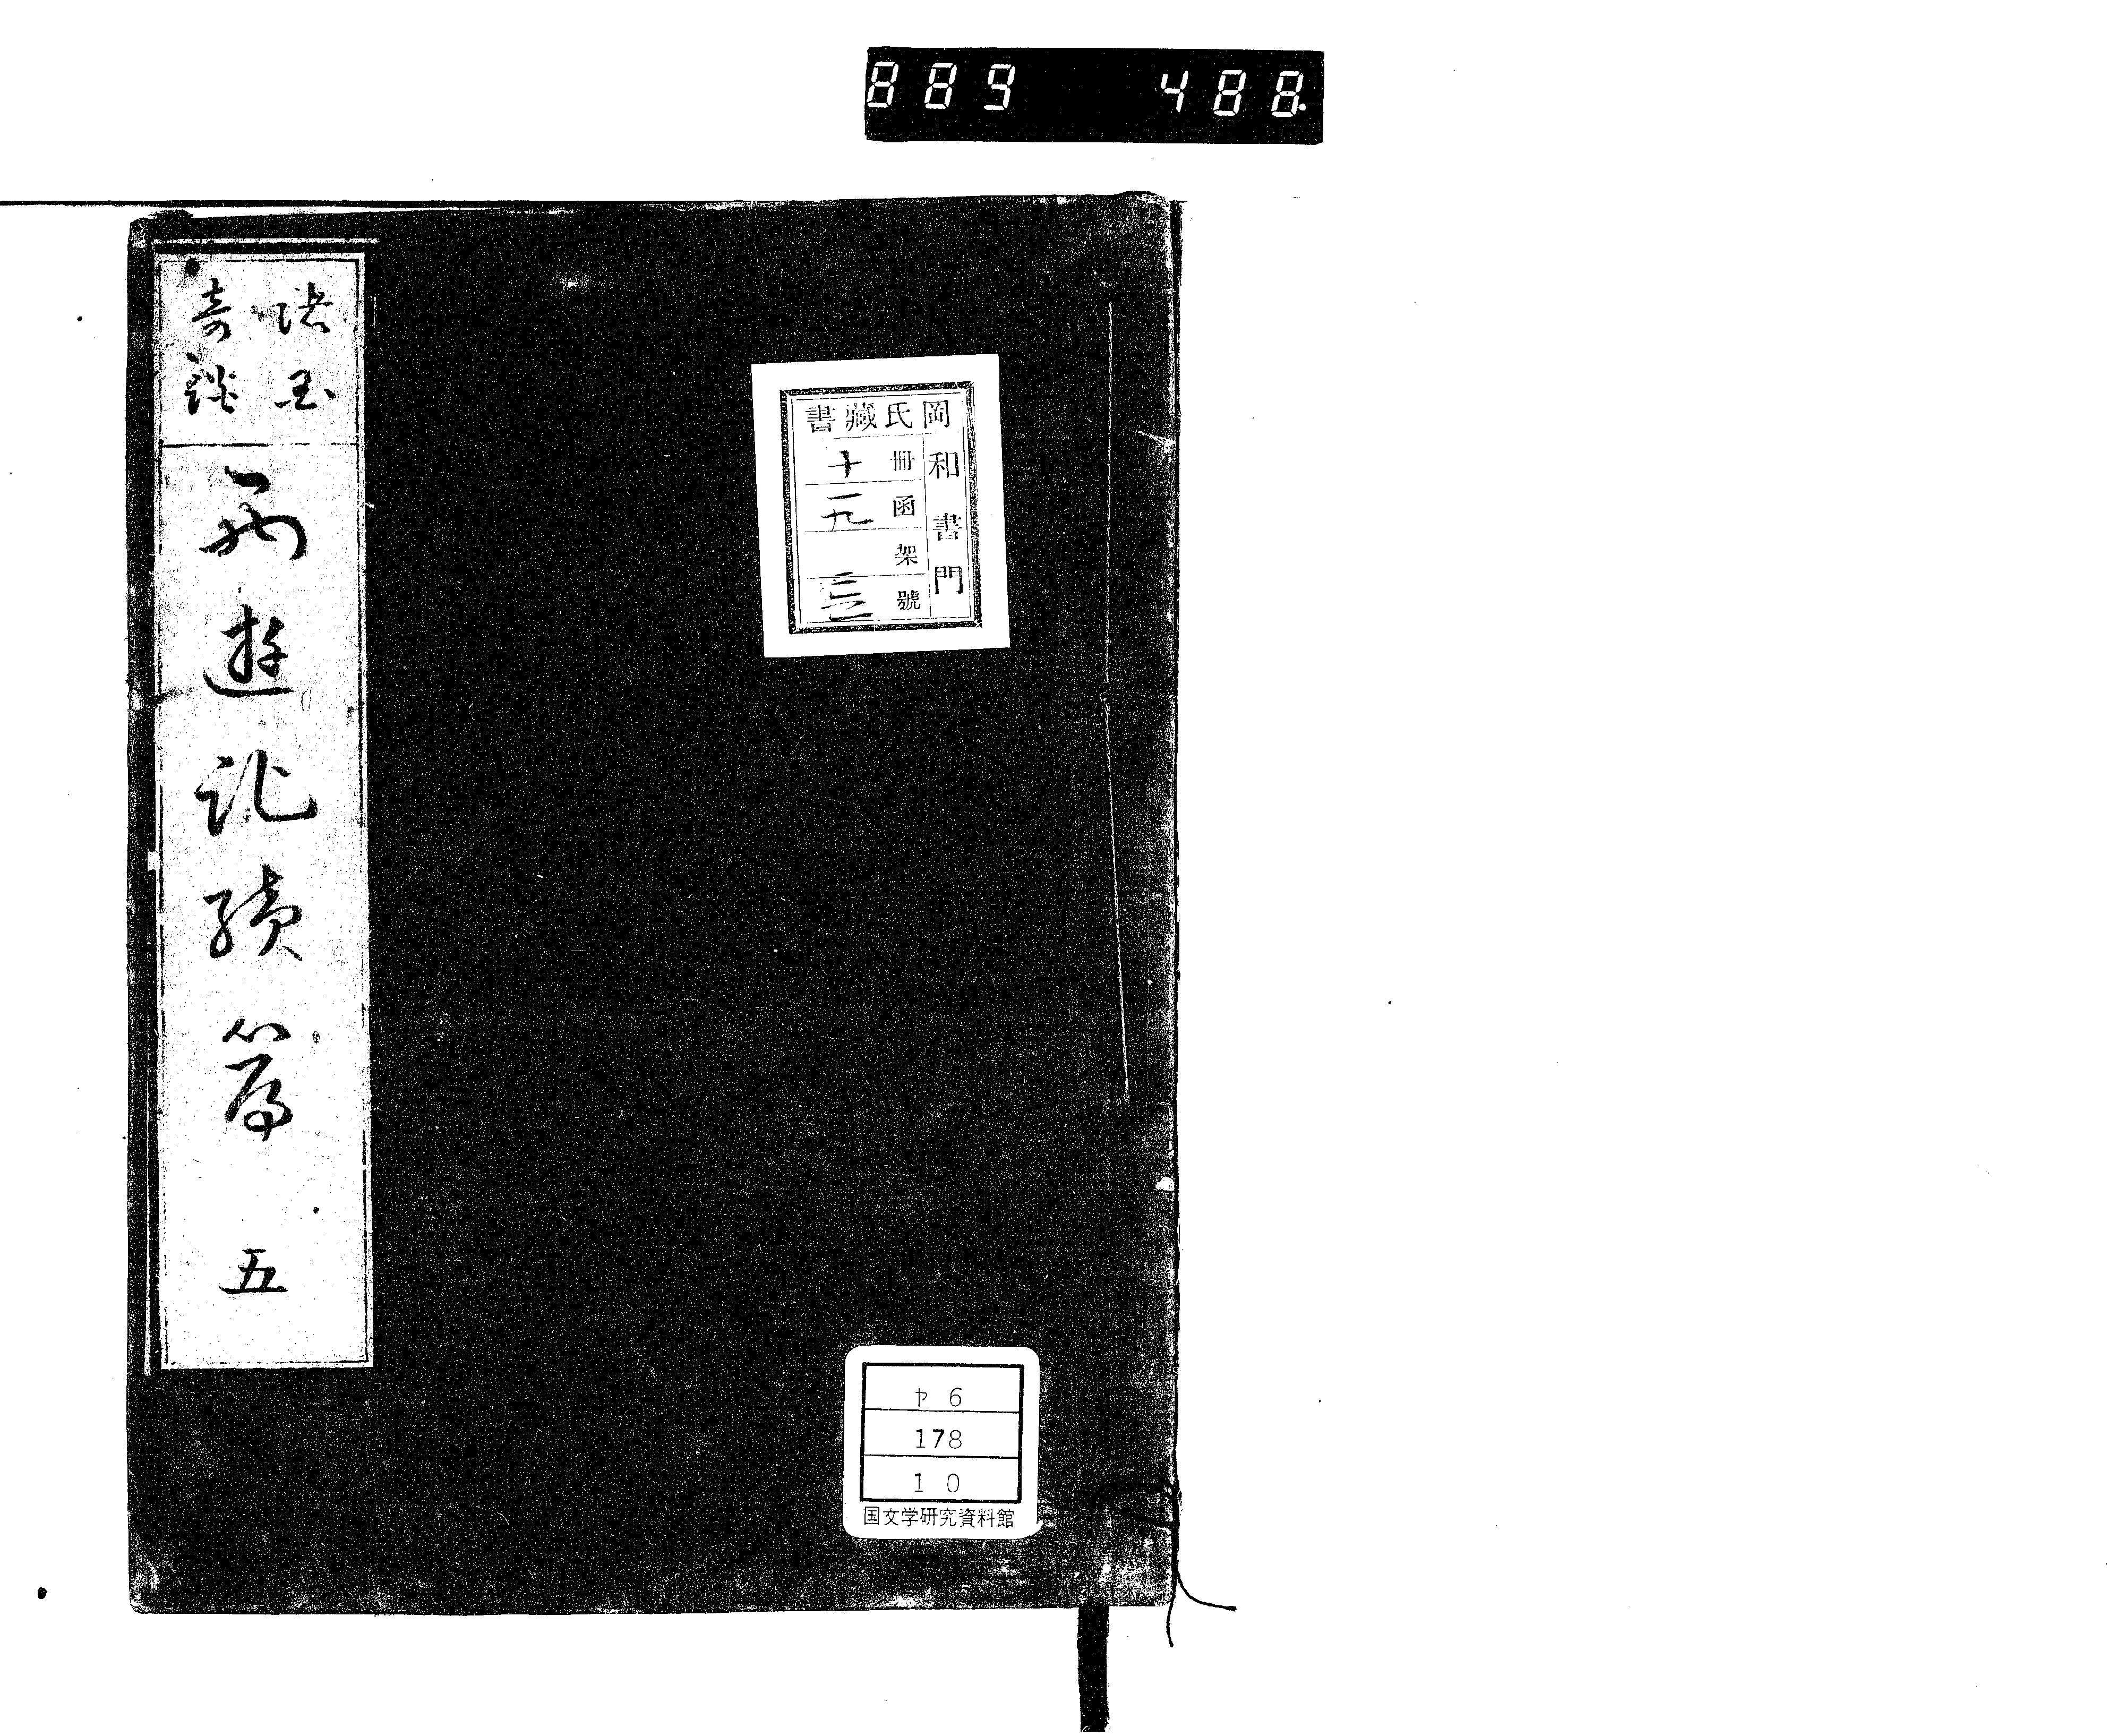 889 488.
諸国
奇談
西遊記續篇 五
岡氏藏書
和書門
冊 十
函 一九
架
號 三三
ヤ6
178
10
国文学研究資料館